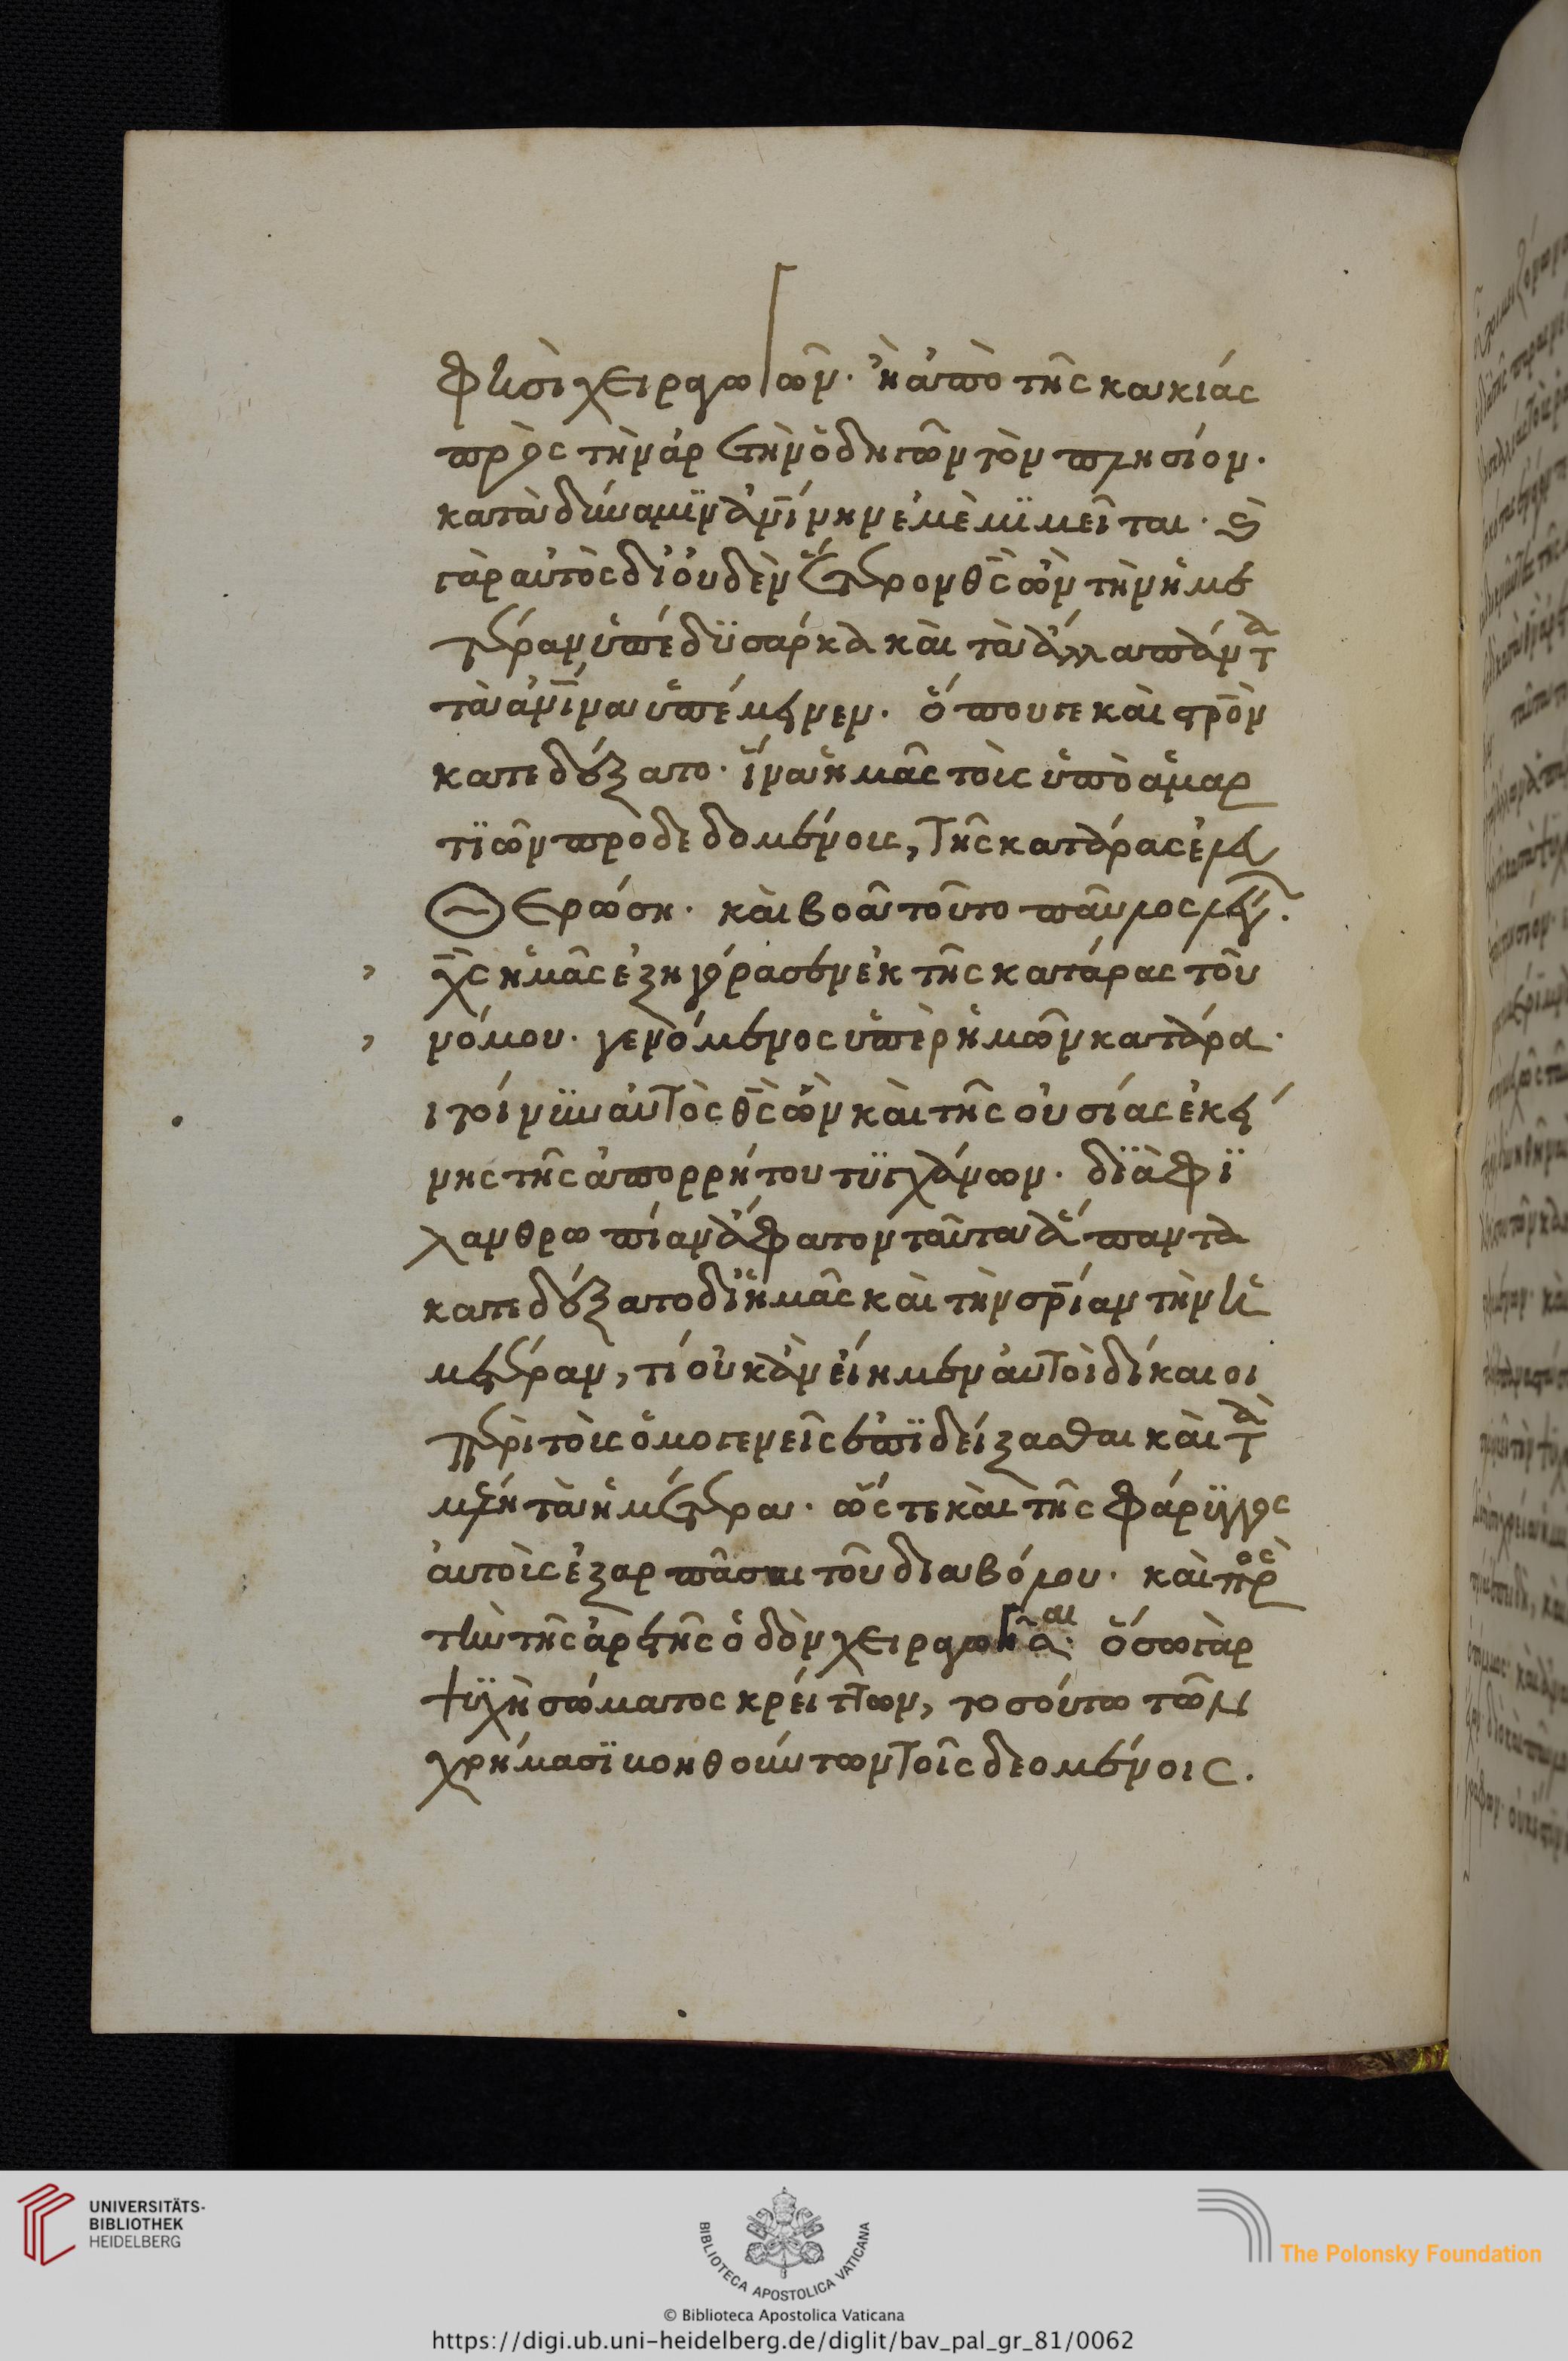 φησὶ χειραγωγῶν· ἢ ἀπὸ τῆς κακίας
πρὸς τὴν ἀρετὴν ὁδηγῶν τὸν πλησίον·
κατὰ δύναμϊν ἀν̅ίνην ἐμὲ μϊμεῖται·
γὰρ αὐτὸς δι' οὐδὲν ἕτερον θ̅ς ὢν τὴν ἡμε
τέραν ὑπέδϋ σάρκα καὶ τὰ ἄλλα πάντα
τὰ ἀν̅ίνα ὑπέμεινεν· ὅπου γε καὶ στρ̅ὸν
κατεδέξατο· ἵνα ἡμᾶς τοῖς ὑπὸ ἁμαρ
τϊῶν προδεδομένοις, τῆς κατάρας ἐλευ
θερώσῃ· καὶ βοᾷ τοῦτο παῦλος λέγων·
χ̅ς ἡμᾶς ἐξηγόρασεν ἐκ τῆς κατάρας τοῦ
νόμου· γενόμενος ὑπὲρ ἡμῶν κατάρα·
τοίνϋν αὐτὸς θ̅ς ὢν καὶ τῆς οὐσίας ἐκεί
νης τῆς ἀπορρήτου τϋγχάνων· δϊὰ φϊ
λανθρωπίαν ἄφατον ταῦτα ἅπαντα
κατεδέξατο δϊ' ἡμᾶς καὶ τὴν σρ̅ίαν τὴν ἡ
μετέραν, τί οὐκ ἂν εἴημεν αὐτοὶ δίκαιοι
περὶ τοὺς ὁμογενεῖς ἐπϊδείξασθαι καὶ τὰ
μέλη τὰ ἡμέτερα· ὥστε καὶ τῆς φάρϋγγος
αὐτοὺς ἐξαρπᾶσαι τοῦ διαβόλου· καὶ πρὸς
τὴν τῆς ἀρετῆς ὁδὸν χειραγωγῆσαι· ὅσω γὰρ
ψϋχὴ σώματος κρείττων, τοσούτω τῶν
χρήμασϊ βοηθούντων τοῖς δεομένοις.
UNIVERSITÄTS-
BIBLIOTHEK
HEIDELBERG
BIBLIOTECA APOSTOLICA VATICANA
The Polonsky Foundation
© Biblioteca Apostolica Vaticana
https://digi.ub.uni-heidelberg.de/diglit/bav_pal_gr_81/0062